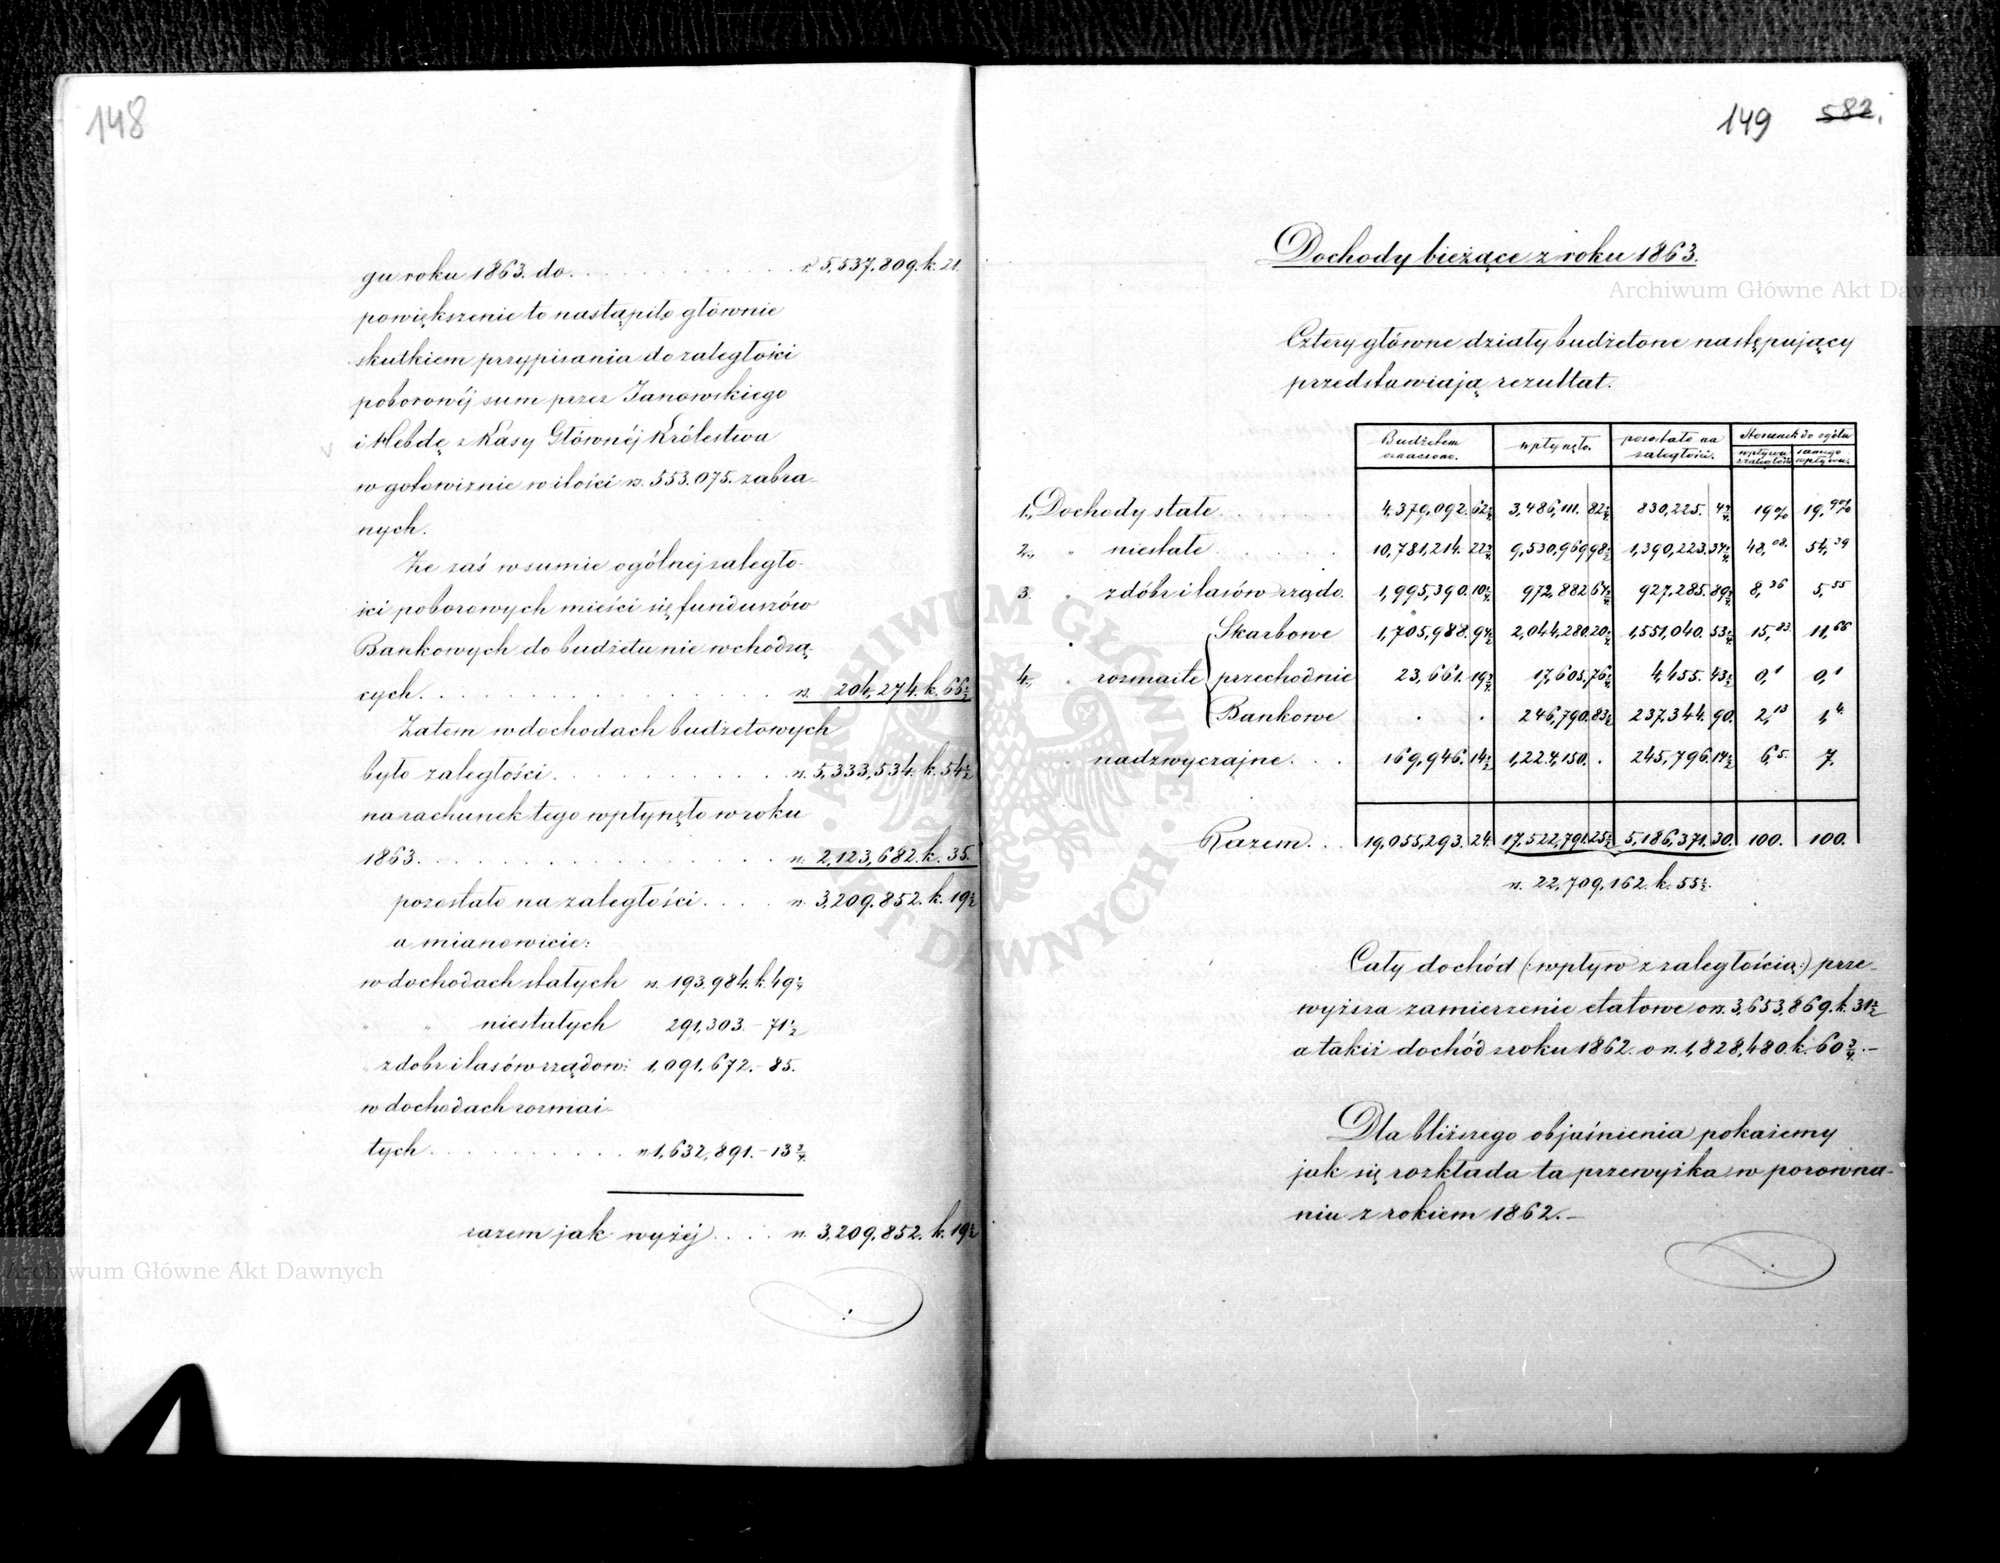 148
gu roku 1863. do . . . . . . . . . . . rs. 5,537,809. k. 21.
powiększenie to nastąpiło głównie
skutkiem przypisania do zaległości
poborowéj sum przez Janowskiego
i Hebdę z Kasy Głównéj Królestwa
w gotowiznie w ilości rs. 553.075. zabra-
nych.
Że zaś w sumie ogólnej zaległo-
ści poborowych mieści się funduszów
Bankowych do budżetu nie wchodzą-
cych. . . . . . . . . . . . . . . rs. 204,274. k. 66½
Zatem w dochodach budżetowych
było zaległości . . . . . . . . . . rs. 5,333,534. k. 54½
na rachunek tego wpłynęło w roku
1863. . . . . . . . . . . . . . . rs. 2,123,682. k. 35.
pozostało na zaległości . . . . rs. 3,209,852. k. 19½
a mianowicie:
w dochodach stałych rs. 193,984. k. 49
" " niestałych 291,303. – 71½
" z dobr i lasów rządow: 1,091,672. – 85.
w dochodach rozmai-
tych . . . . . . . . . . rs. 1,632,891. – 13¾
razem jak wyżéj . . . . rs. 3,209,852. k. 19½
149 582.
Dochody bieżące z roku 1863.
Cztery główne działy budżetowe następujący
przedstawiają rezultat.
Budżetem oznaczono. wpłynęło. pozostało na zaległości. Stosunek do ogółu
wpływu z zaległości samego wpływu.
1., Dochody stałe . . . . . 4,379,092. 62 3,486,111. 82 830,225. 4 19% 19,90%
2., " niestałe . . . . . 10,781,214. 22 9,530,969 98 1,390,223. 37 48,08. 54,39
3. " z dóbr i lasów rządo. 1,995,390. 10 972,882 64 927,285. 89 8,36 5,55
Skarbowe 1,705,988. 94 2,044,280. 20 1,551,040. 53 15,83. 11,66
4., " rozmaite przechodnie 23,661. 19 17,605. 76 4,455. 43 0,1 0,1
Bankowe . . 246,790. 83 237,344. 90. 2,13 1,4.
" nadzwyczajne . . . 169,946. 14 1,224,150. . 245,796. 14 6,5. 7.
Razem . . 19,055,293. 24. 17,522,791. 25½ 5,186,371. 30. 100. 100.
rs. 22,709,162. k. 55½.
Cały dochód (: wpływ z zaległością :) prze-
wyższa zamierzenie etatowe o rs. 3,653,869. k. 31½
a takiż dochód z roku 1862. o rs. 1,828,480. k. 60¾. –
Dla bliższego objaśnienia pokażemy
jak się rozkłada ta przewyżka w porówna-
niu z rokiem 1862. –
Archiwum Główne Akt Dawnych
Archiwum Główne Akt Dawnych
ARCHIWUM GŁÓWNE AKT DAWNYCH